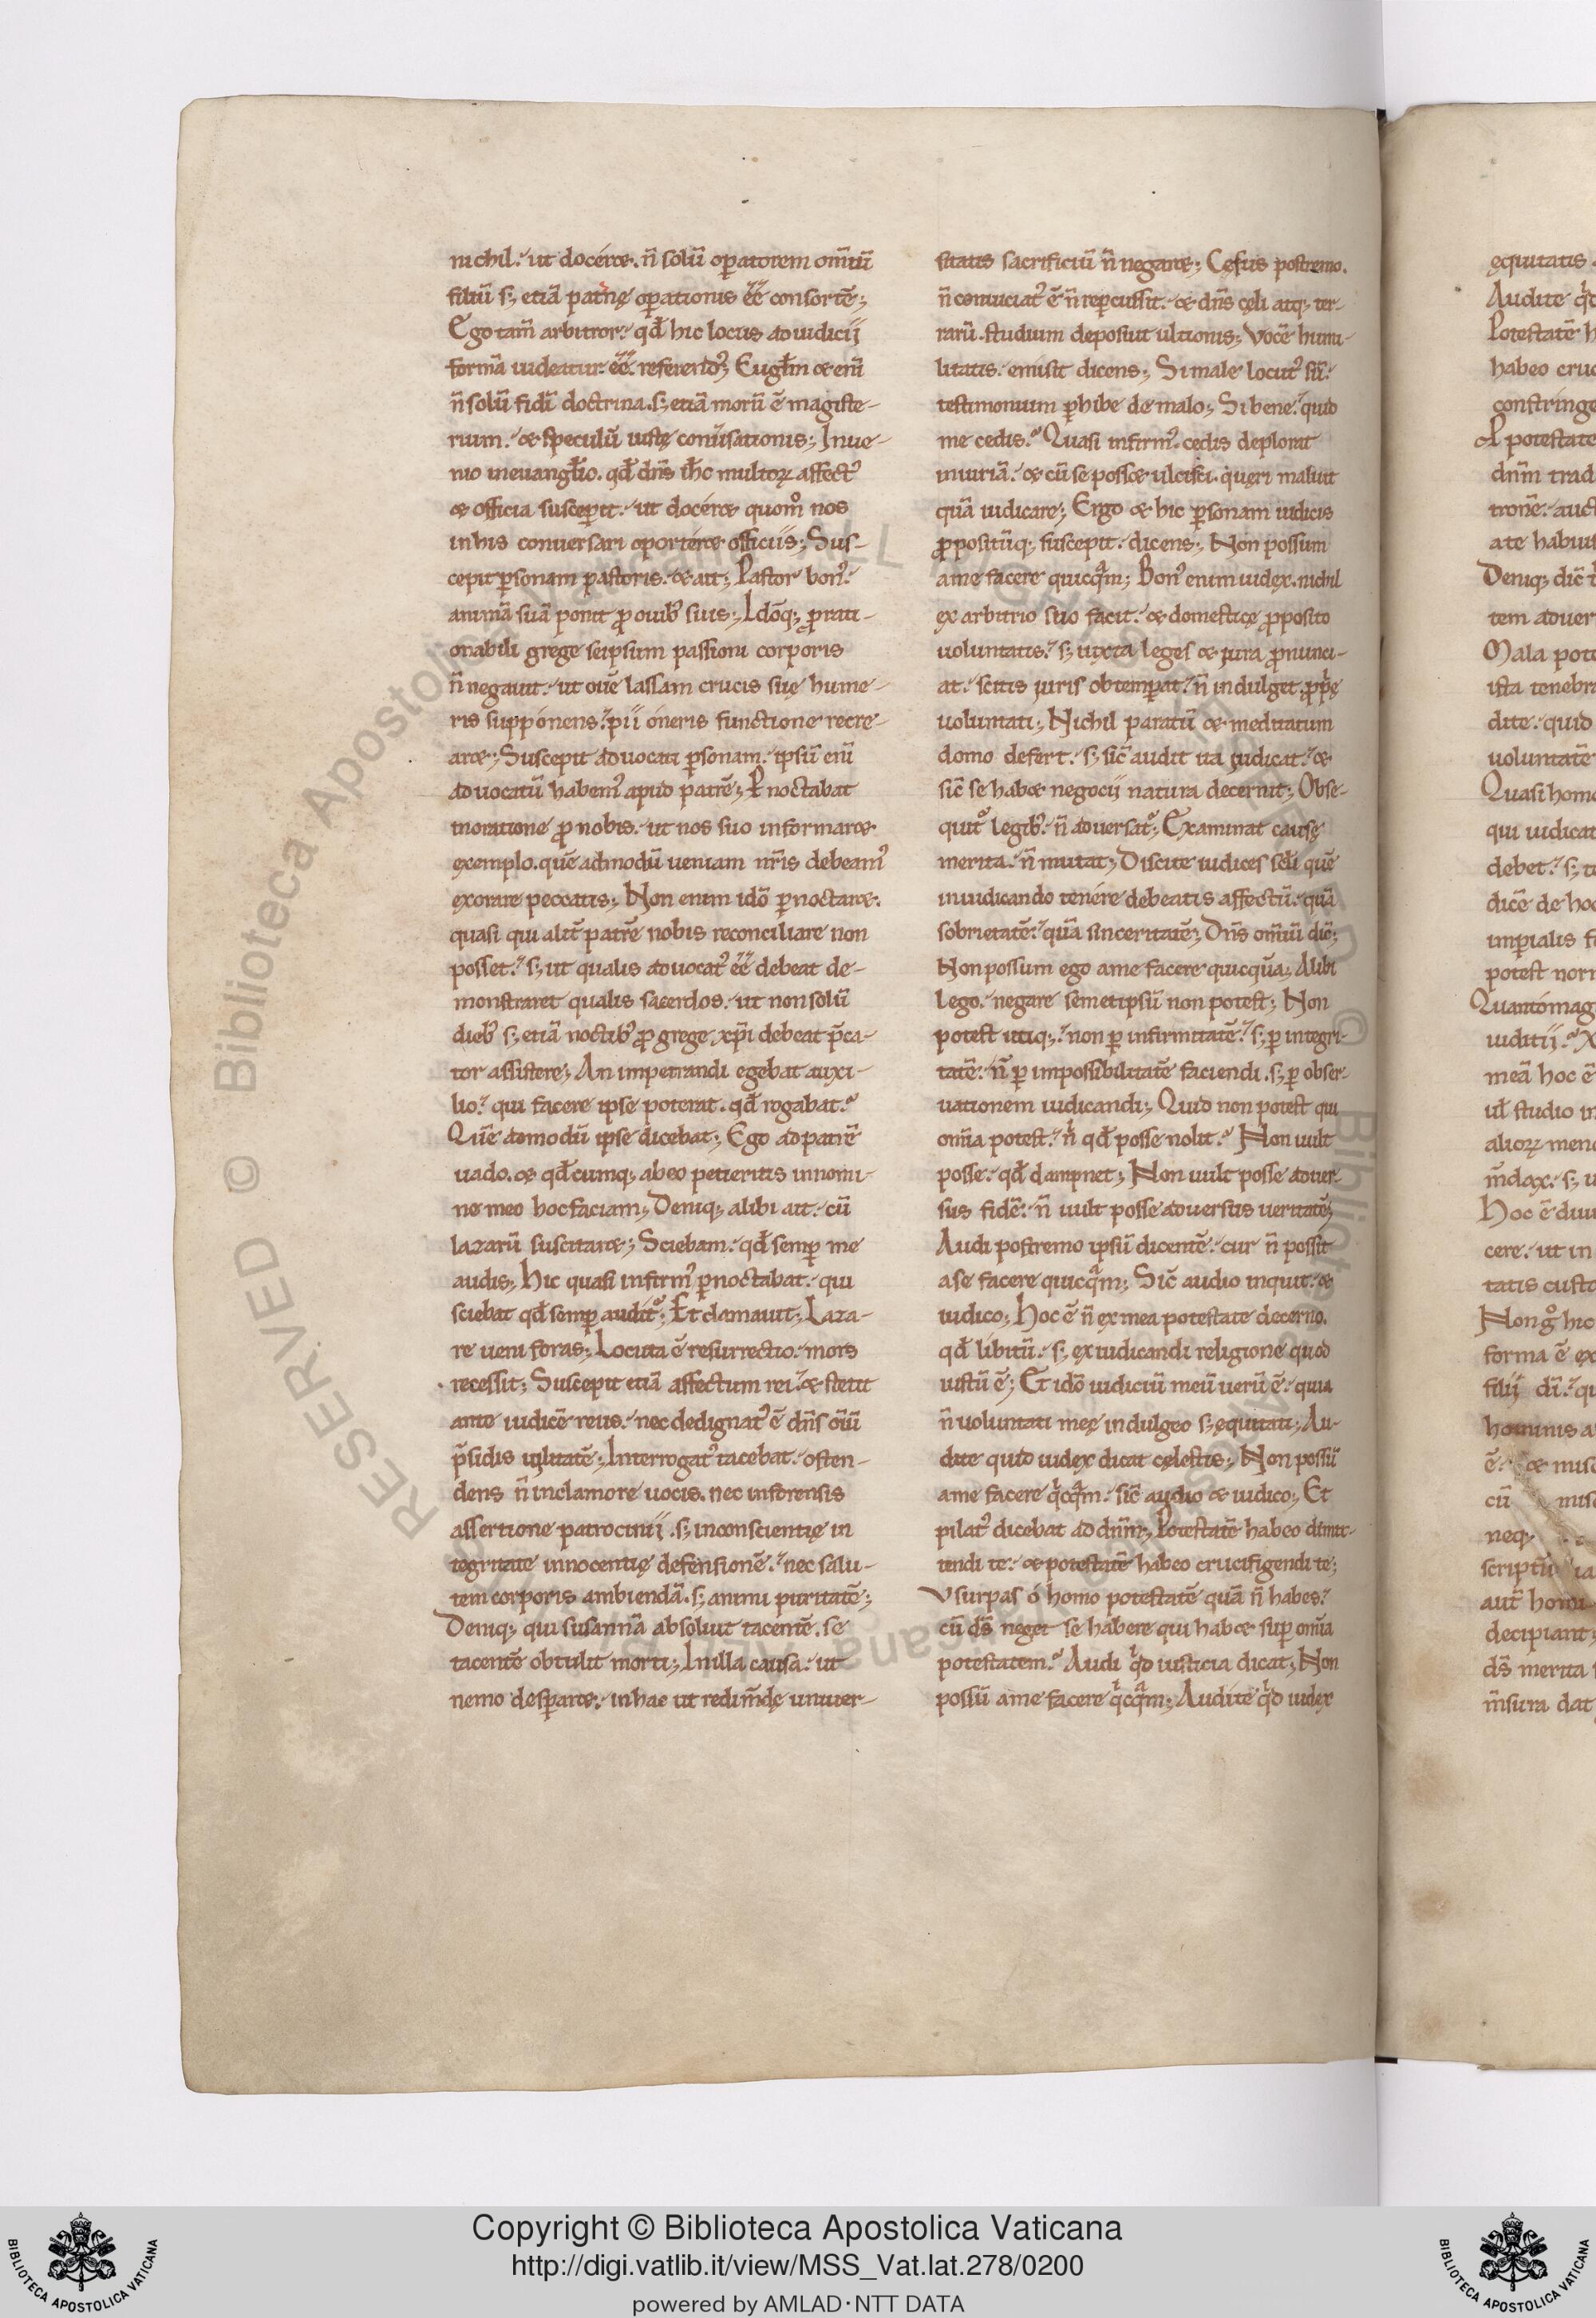 nichil. ut docéret. n̄ solū op̄atorem om̄iū
filiū s; etiā pat̄nę op̄ationis ēē consortē;
Ego tam̄ arbitror. qđ hic locus ad iudicij
formā uideatur. ēē. referend9; Eugłm et eni᷑
n̄ solū fidi᷑ doctrina. s; etiā morū ē magiste-
rium. et speculū iustę conu᷑sationis; Inue-
nio in euangłio. qđ dn̄s ih̄c multoꝝ affect9
et officia suscepit. ut docéret quom̊ nos
in his conuersari oportéret officiis; Sus-
cepit ꝑsonam pastoris. et ait; Pastor bon9.
animā suā ponit ꝓ ouib9 suis; Idōq; ꝓ rati-
onabili grege seipsum passioni corporis
n̄ negauit. ut ouē lassam crucis suę hume-
ris suppónens. pii óneris functione recre-
aret; Suscepit aduocati ꝑsonam. ipsū eni᷑
aduocatū habem9 apud patrē; P̱noctabat
in oratione ꝓ nobis. ut nos suo informaret
exemplo. quē admodū ueniam nr̄is debeam9
exorare peccatis; Non enim idō ꝑnoctaret.
quasi qui alit᷑ patrē nobis reconciliare non
posset. s; ut qualis aduocat9 ēē debeat de-
monstraret qualis sacerdos. ut non solū
dieb9 s; etiā noctib9 ꝓ grege xp̄i debeat p̄ca-
tor assistere; An impetrandi egebat auxi-
lio. qui facere ipse poterat. qđ rogabat.
Quē admodū ipse dicebat; Ego ad patrē
uado. et qđcumq; ab eo petieritis in nomi-
ne meo hoc faciam; Deniq; alibi ait. cū
lazarū suscitaret; Sciebam. qđ semꝑ me
audis; Hic quasi infirm9 ꝑnoctabat. qui
sciebat qđ semꝑ audit᷑; Et clamauit; Laza-
re ueni foras; Locuta ē resurrectio. mors
recessit; Suscepit etiā affectum rei. et stetit
ante iudicē reus. nec dedignat9 ē dn̄s oi᷑ū
p̄sidis uilitatē; Interrogat9 tacebat. osten-
dens n̄ in clamore uocis. nec in forensis
assertione patrocinij. s; in conscientię in
tegritate innocentię defensionē. nec salu-
tem corporis ambiendā. s; animi puritatē;
Deniq; qui susannā absoluit tacentē. se
tacentē obtulit morti; In illa causa. ut
nemo desꝑaret. in hac ut redim̄dę uniuer-
sitatis sacrificiū n̄ negaret; Cęsus postremo.
n̄ conuiciat9 ē n̄ reꝑcussit. et dn̄s cęli atq; ter-
rarū. studium deposuit ultionis; Vocē humi-
litatis. emisit dicens; Si male locut9 sū.
testimonium ꝑhibe de malo; Si bene. quid
me cedis. Quasi infirm9. cedis deplorat
iniuriā. et cū se posset ulcisci. quęri maluit
quā iudicare; Ergo et hic ꝑsonam iudicis
ꝓpositūq; suscepit. dicens; Non possum
a me facere quicqᵃm; Bon9 enim iudex. nichil
ex arbitrio suo facit. et domesticę ꝓposito
uoluntatis. s; iuxta leges et iura ꝓnunci-
at. scitis iuris obtemꝑat. n̄ indulget ꝓpⁱę
uoluntati; Nichil paratū et meditatum
domo defert. s; sic̄ audit ita iudicat. et
sic̄ se habet negocij natura decernit; Obse-
quit᷑ legib9. n̄ aduersat᷑; Examinat causę
merita. n̄ mutat; Discite iudices secłi quē
in iudicando tenére debeatis affectū. quā
sobrietatē. quā sinceritatē; Dn̄s om̄iū dic̄;
Non possum ego a me facere quicquā; Alibi
lego. negare semetipsū non potest; Non
potest utiq;. non ꝑ infirmitatē. s; ꝑ integri-
tatē. n̄ ꝑ impossibilitatē faciendi. s; ꝑ obser-
uationem iudicandi; Quid non potest qui
om̄ia potest. nⁱ qđ posse nolit. Non uult
posse. qđ dampnet; Non uult posse aduer-
sus fidē. n̄ uult posse aduersus ueritatē;
Audi postremo ipsū dicentē. cur n̄ possit
a se facere quicqᵃm; Sic̄ audio inquit. et
iudico; Hoc ē n̄ ex mea potestate decerno.
qđ libitū. s; ex iudicandi religione quod
iustū ē; Et idō iudiciū meū uerū ē. quia
n̄ uoluntati meę indulgeo s; ęquitati; Au-
dite quid iudex dicat cęlestis; Non possū
a me facere qⁱcqᵃm. sic̄ audio et iudico; Et
pilat9 dicebat ad dn̄m; Potestatē habeo dimit-
tendi te. et potestatē habeo crucifigendi te;
Vsurpas ó homo potestatē quā n̄ habes.
cū ds̄ neget se habere qui habet suꝑ om̄ia
potestatem. Audi qⁱd iusticia dicat; Non
possū a me facere qⁱcqᵃm; Audite qⁱd iudex
ęquitatis
Audite qⁱd
Potestatē h
habeo cruc
constringe
potestate
dn̄m trad
tronē. auct
a te habuis
Deniq; dic̄
tem aduer
Mala pote
ista tenebra
dite. quid
uoluntatē
Quasi homo
qui iudicat
debet. s; te
dicē de hoc
imꝑialis
potest norm
Quanto mag
iuditij.
meā hoc ē
uł studio in
alioꝝ men
m̄dax. s; u
Hoc ē diui
cere. ut in
tatis custo
Non g̊ hic
forma ē ex
filij di᷑. qu
hominis a
ē. et mis
cū mis
neq;
scriptū ia
aut᷑ homi
decipiant
ds̄ merita
m̄sura dat
© Biblioteca Apostolica Vaticana ALL RIGHTS RESERVED
Copyright © Biblioteca Apostolica Vaticana
http://digi.vatlib.it/view/MSS_Vat.lat.278/0200
powered by AMLAD·NTT DATA
BIBLIOTECA APOSTOLICA VATICANA
BIBLIOTECA APOSTOLICA VATICANA